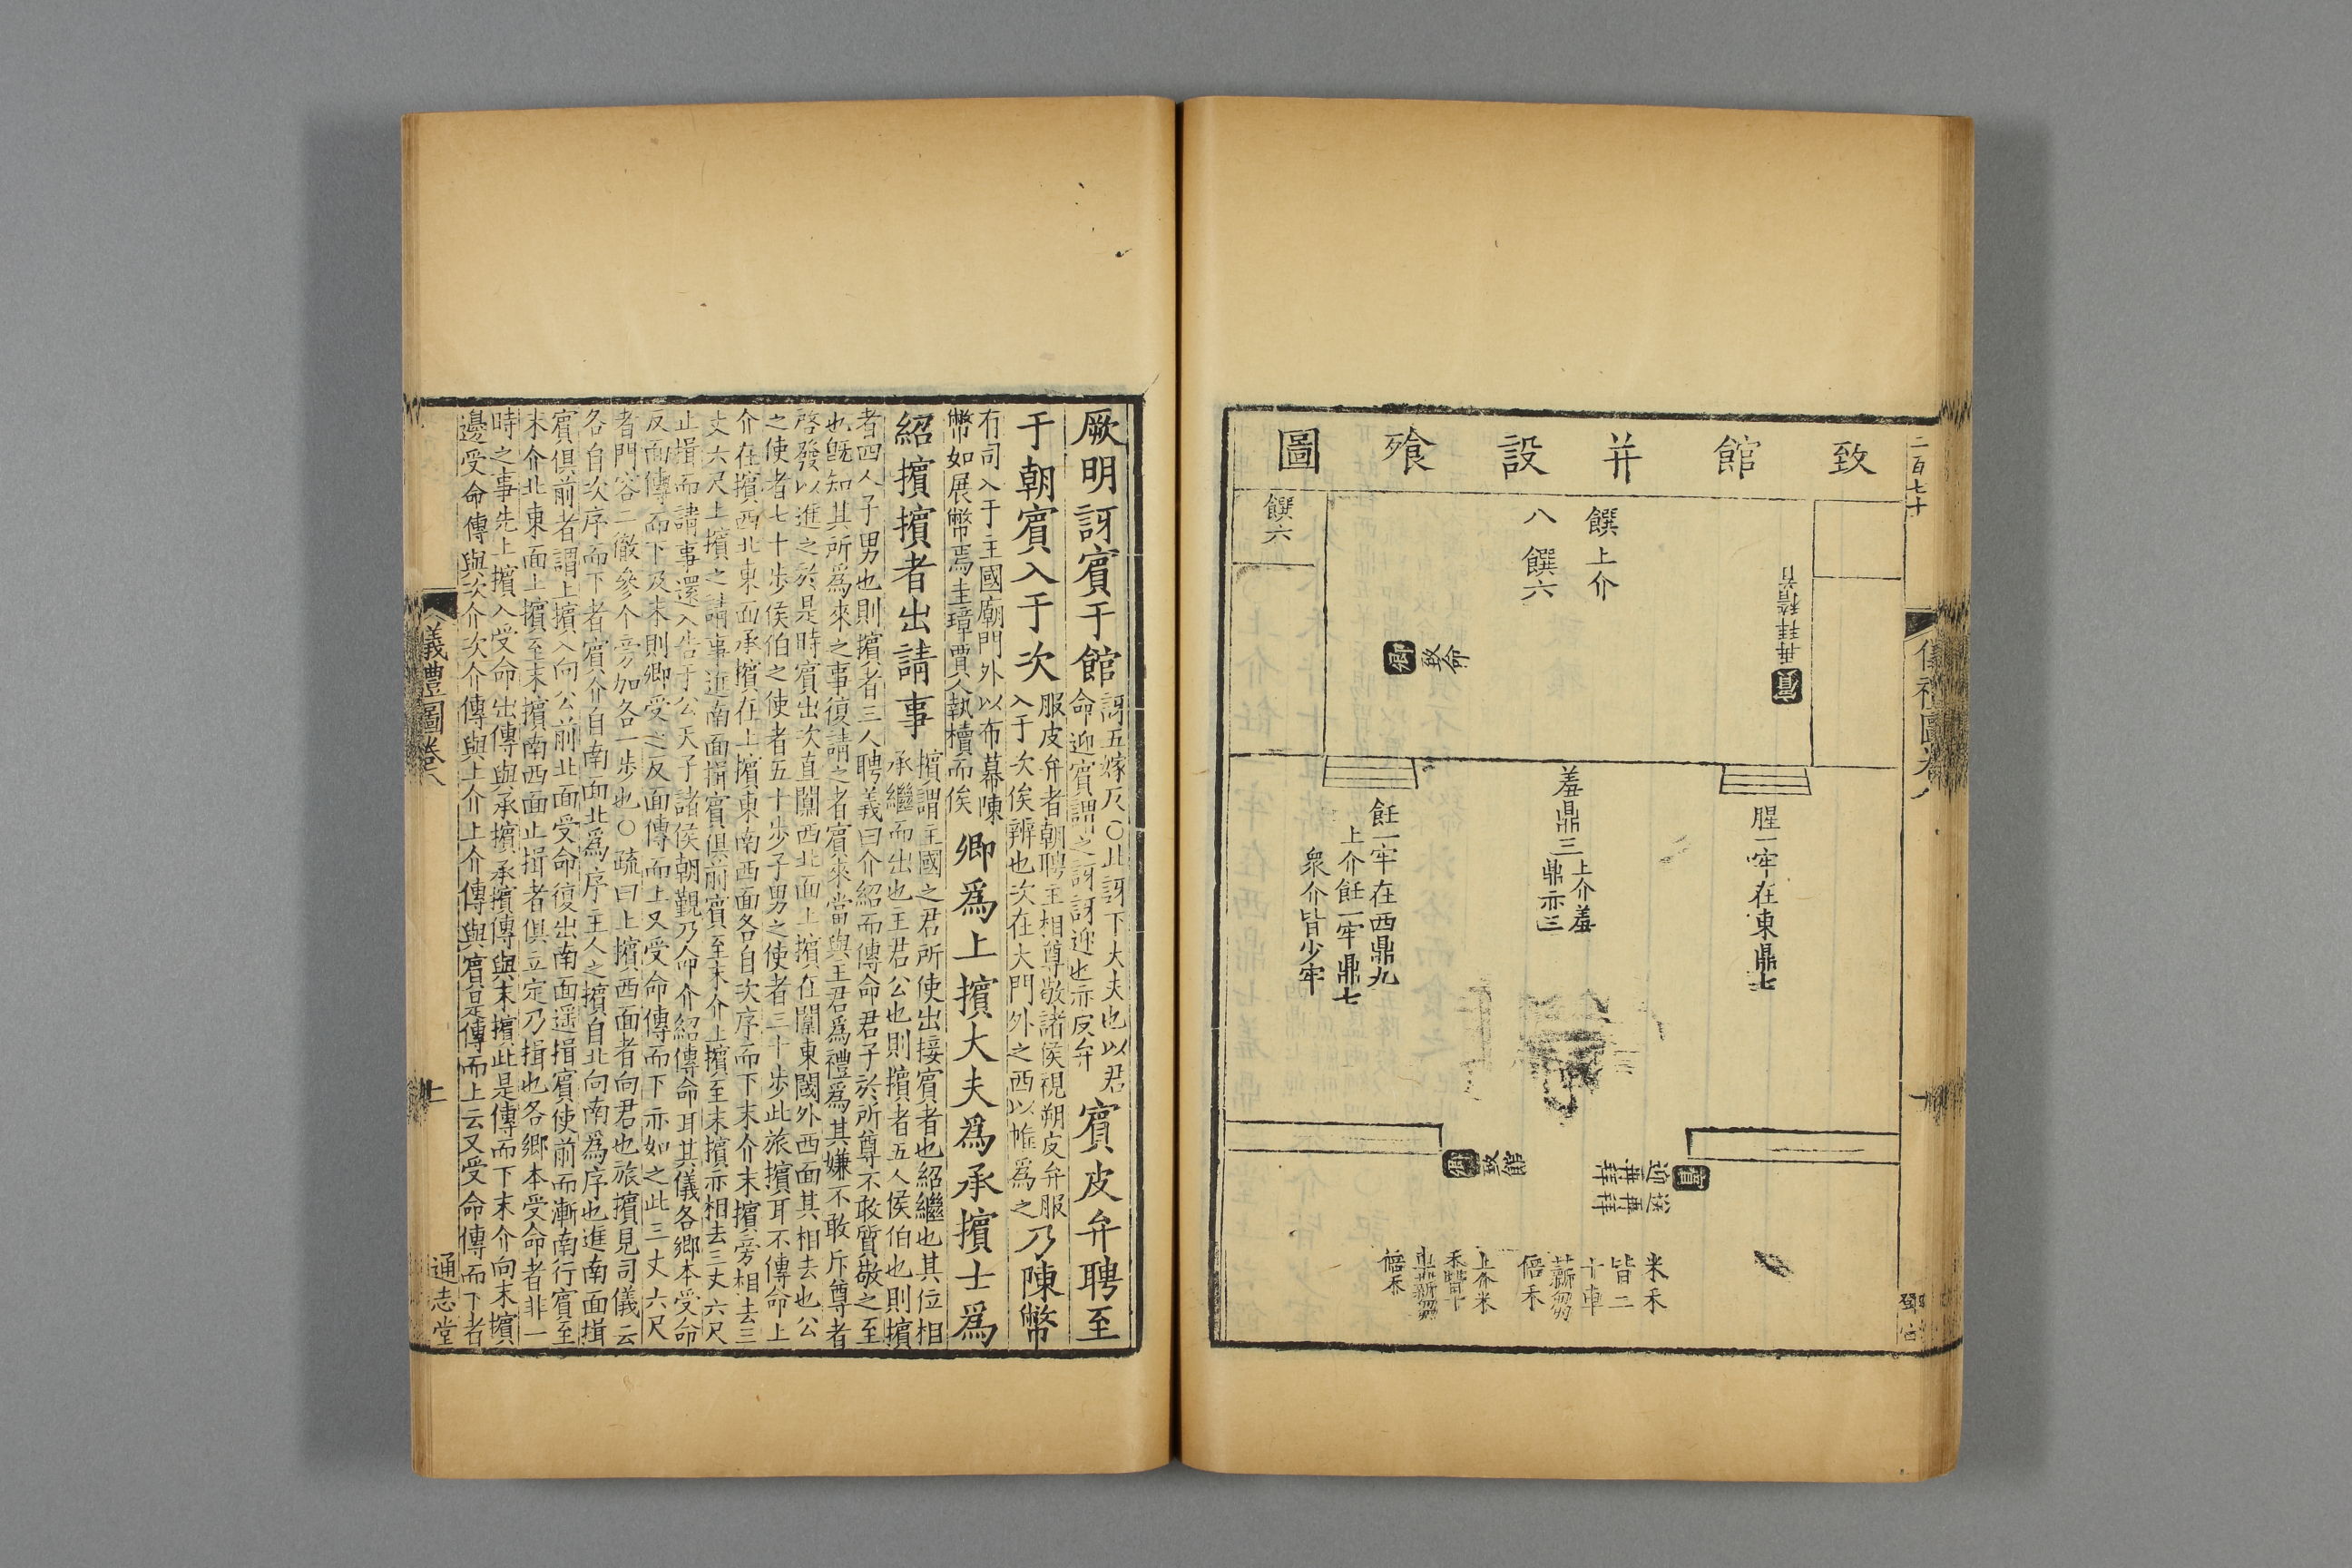 二百七十
儀禮圖卷八
致館并設飧圖
賓
再拜稽首
饌上介
八饌六
卿
致命
饌六
腥一牢在東鼎七
羞鼎三
上介羞
鼎亦三
飪一牢在西鼎九
上介飪一牢鼎七
衆介皆少牢
賓
迎再拜
送再拜
卿
致館
米禾
皆二
十車
薪芻
倍禾
上介米
禾皆十
車薪芻
倍禾
厥明訝賓于館
訝五嫁反○此訝下大夫也以君
命迎賓謂之訝訝迎也亦皮弁
賓皮弁聘至
于朝賓入于次
服皮弁者朝聘主相尊敬諸侯視朔皮弁服
入于次俟辨也次在大門外之西以帷爲之
乃陳幣
有司入于主國廟門外以布幕陳
幣如展幣焉圭璋賈人執櫝而俟
卿爲上擯大夫爲承擯士爲
紹擯擯者出請事
擯謂主國之君所使出接賓者也紹繼也其位相
承繼而出也主君公也則擯者五人侯伯也則擯
者四人子男也則擯者三人聘義曰介紹而傳命君子於所尊不敢質敬之至
也旣知其所爲來之事復請之者賓來當與主君爲禮爲其嫌不敢斥尊者
啓發以進之於是時賓出次直闑西北面上擯在闑東閾外西面其相去也公
之使者七十步侯伯之使者五十步子男之使者三十步此旅擯耳不傳命上
介在擯西北東面承擯在上擯東南西面各自次序而下末介末擯旁相去三
丈六尺上擯之請事進南面揖賓俱前賓至末介上擯至末擯亦相去三丈六尺
止揖而請事還入告于公天子諸侯朝覲乃命介紹傳命耳其儀各鄉本受命
反面傳而下及末則鄉受之反面傳而上又受命傳而下亦如之此三丈六尺
者門容二徹參个旁加各一步也○疏曰上擯西面者向君也旅擯見司儀云
各自次序而下者賓介自南而北爲序主人之擯自北向南爲序也進南面揖
賓俱前者謂上擯入向公前北面受命復出南面遥揖賓使前而漸南行賓至
末介北東面上擯至末擯南西面止揖者俱立定乃揖也各鄉本受命者非一
時之事先上擯入受命出傳與承擯承擯傳與末擯此是傳而下末介向末擯
邊受命傳與次介次介傳與上介上介傳與賓是傳而上云又受命傳而下者
儀禮圖卷八
通志堂